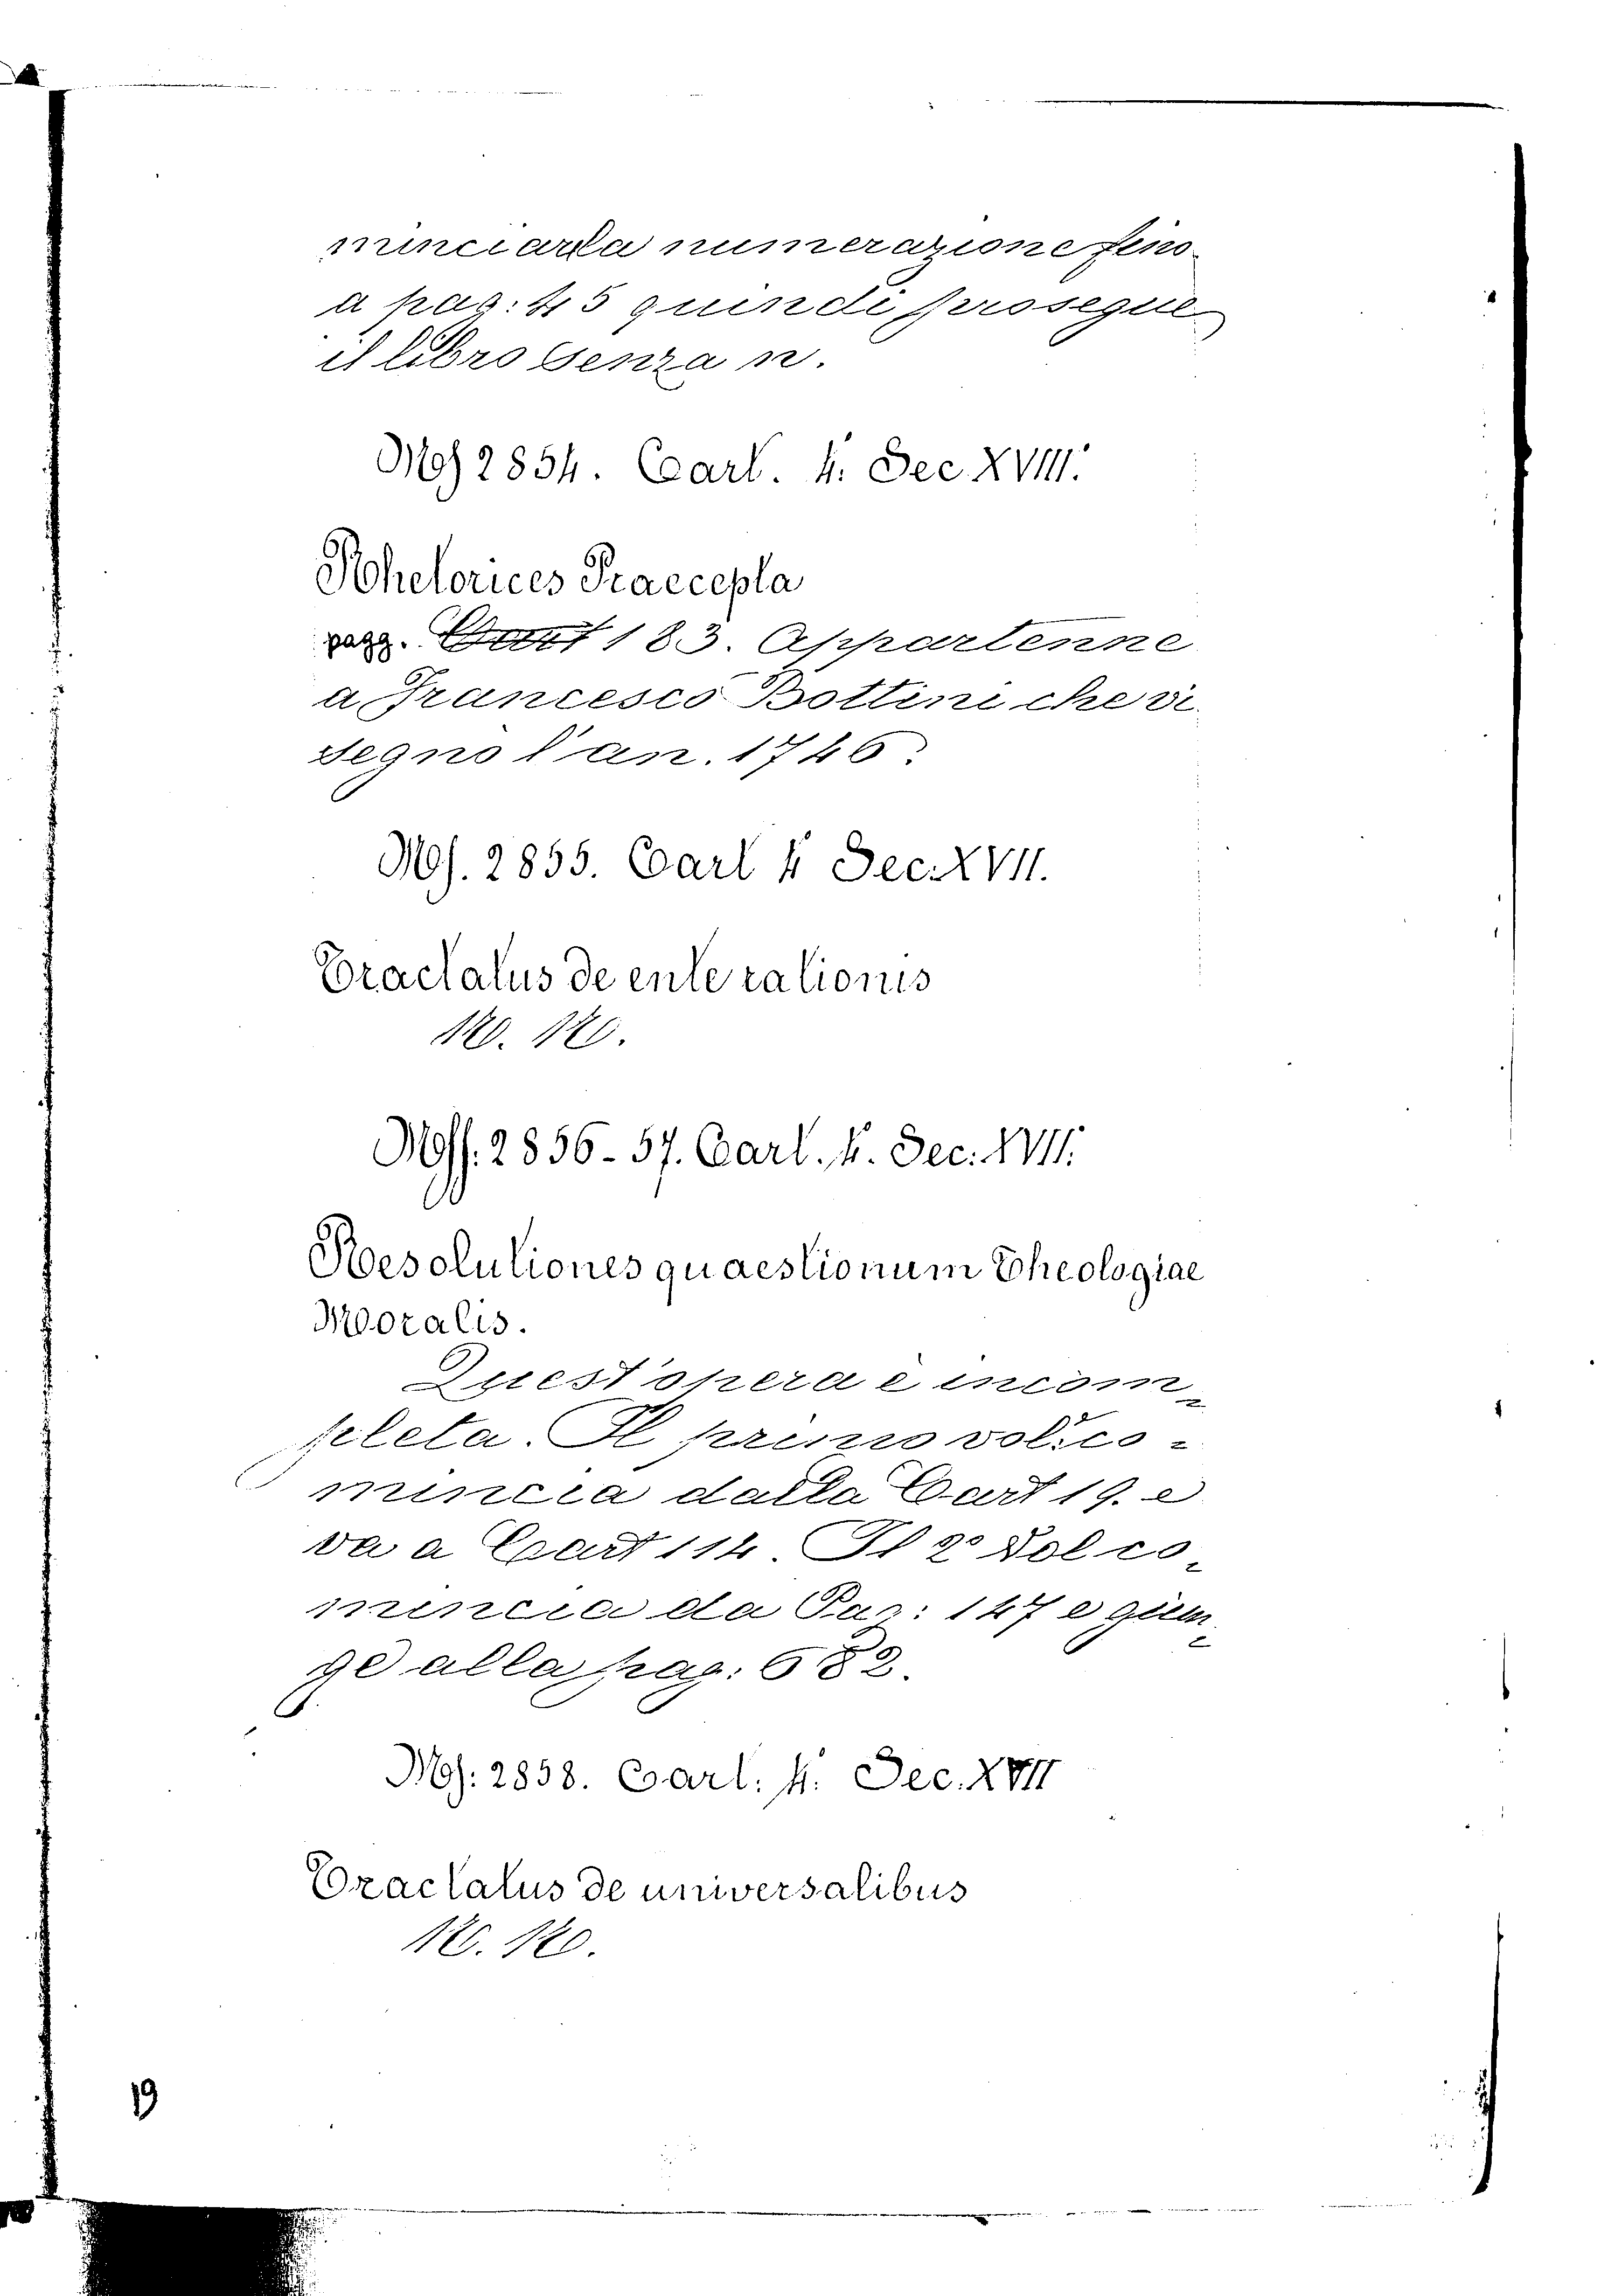 minciar la numerazione fino
a pag: 45 quindi prosegue
il libro senza n.
Ms 2854. Cart. 4. Sec XVIII.
Rhetorices Praecepta
pagg. Cart 183. Appartenne
a Francesco Bottini che vi
segnò l'an. 1746.
Ms. 2855. Cart 4 Sec. XVII.
Tractatus de ente rationis
N. N.
Mss. 2856-57. Cart. 4. Sec. XVII.
Resolutiones quaestionum Theologiae
Moralis.
Quest'opera è incom-
pleta. Il primo vol. co-
mincia dalla Cart 19. e
va a Cart 114. Il 2º Vol co-
mincia da Pag: 147 e giun-
ge alla pag: 682.
Ms: 2858. Cart: 4. Sec. XVII
Tractatus de universalibus
N. N.
19